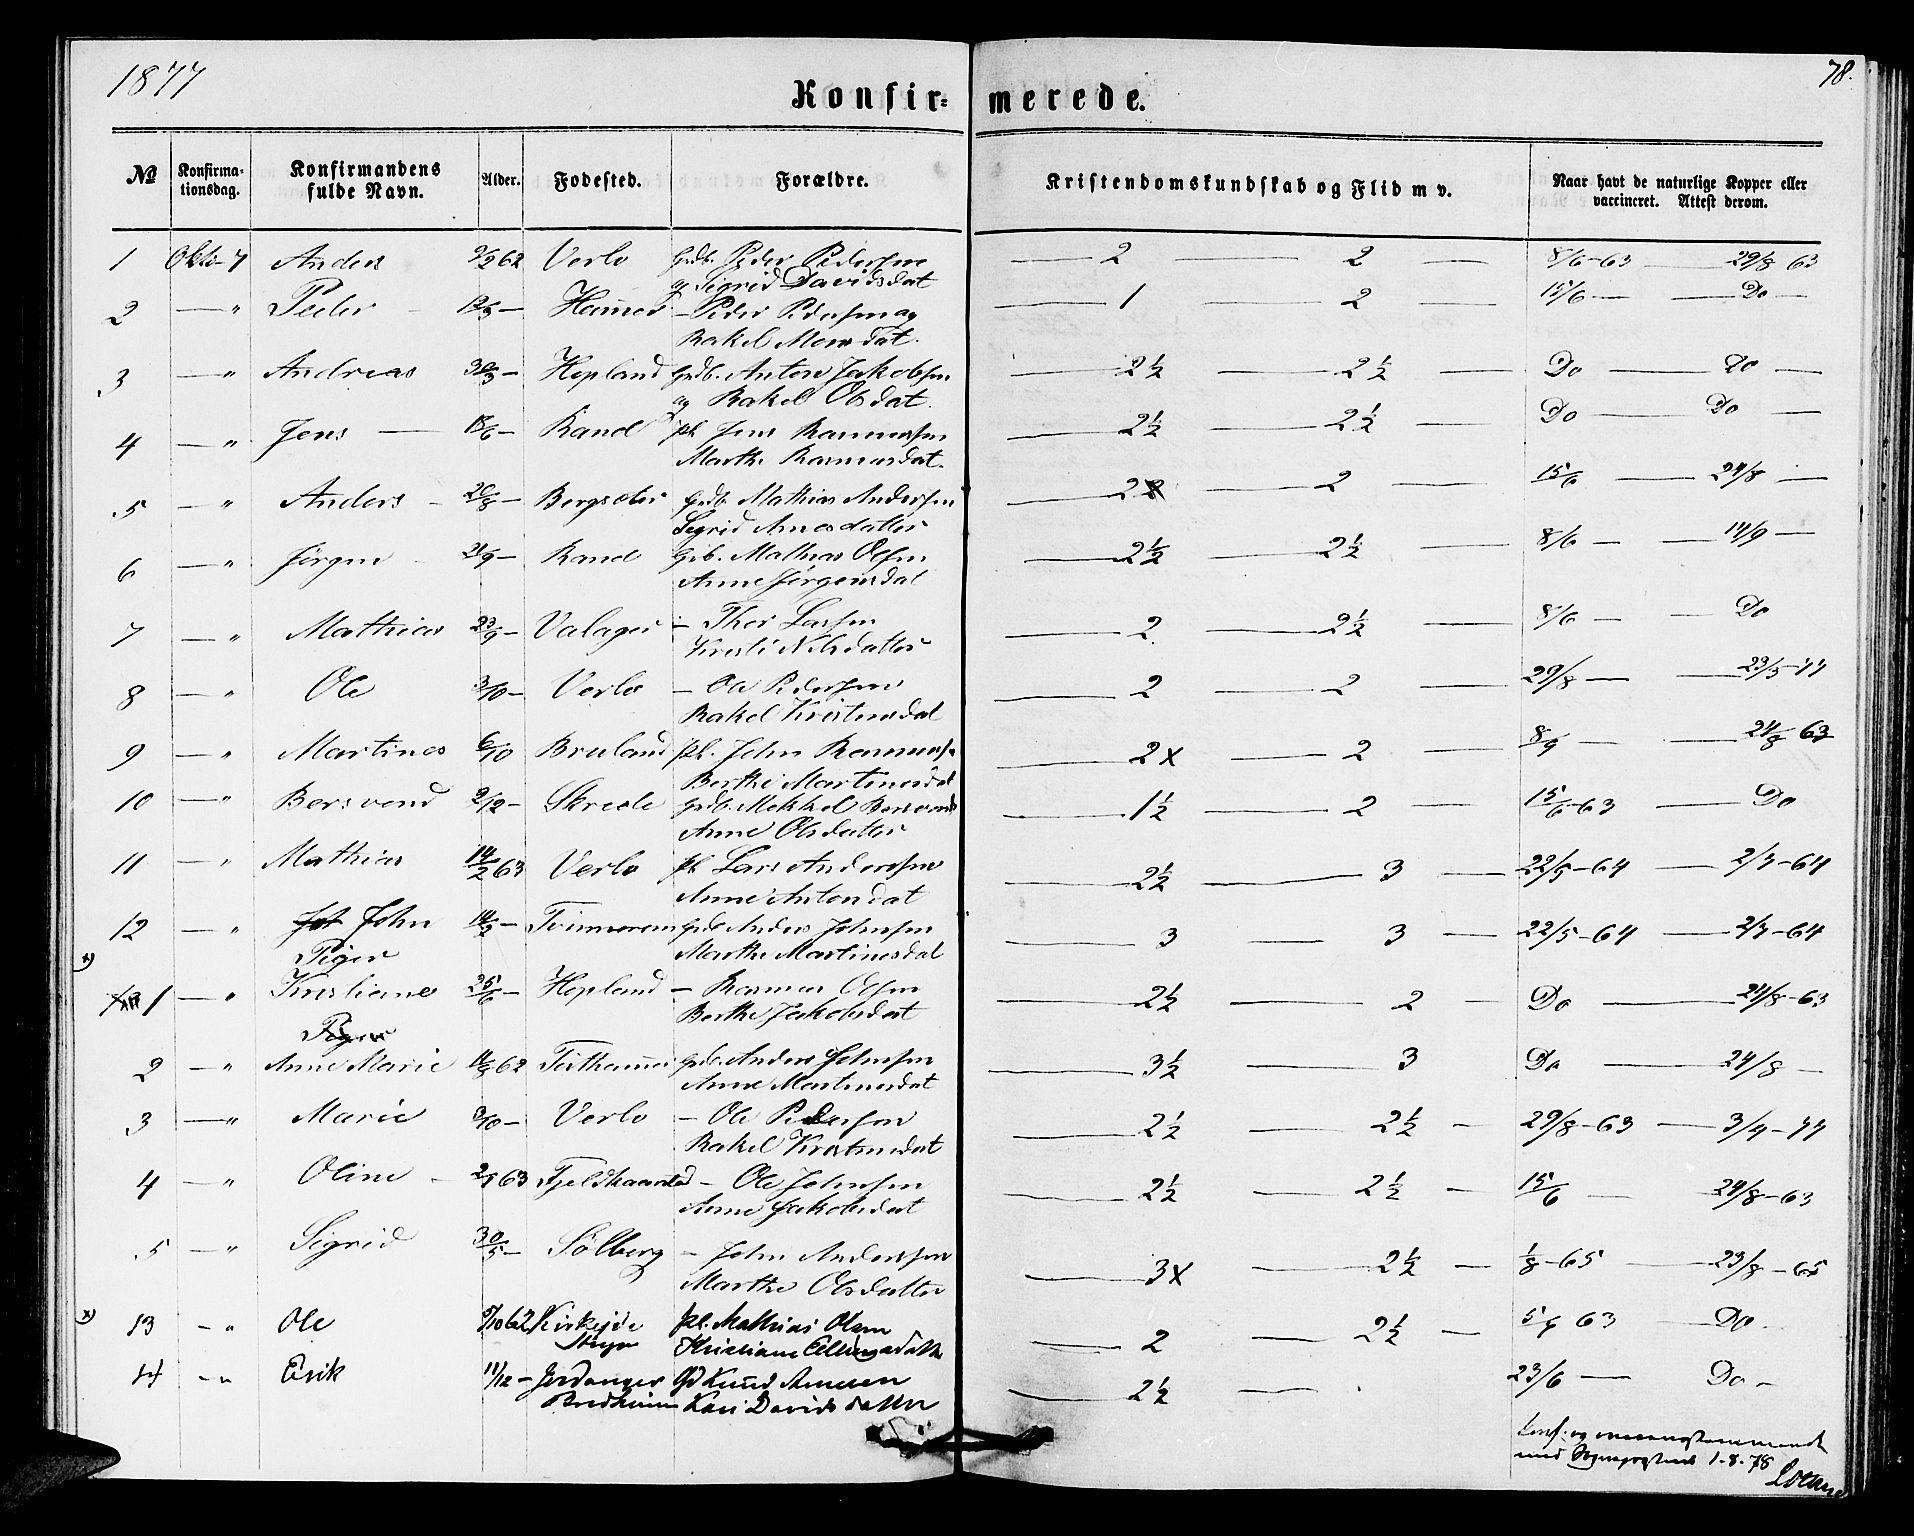 1877
78.
Konfir= merede.
No Konfirma-tionsdag. Konfirmandens fulde Navn. Alder. Fødested. Forældre. Kristendomskundskab og Flid m v. Naar havt de naturlige Kopper eller vaccineret. Attest derom.
1 Oktr 7 Anders 9/2 62 Verlo Grdb. Peder Pedersen 2 2 8/6-63 29/8 63
og Sigrid Davidsdat
2 — " Peder Hammer — Peder Pedersen og 1 2 15/6 — Do —
Rakel Monsdat.
3 — " Andreas 30/3 — Hopland Grdb. Anton Jakobsen 2½ 2½ Do Do —
og Rakel Olsdat.
4 — " Jens — 18/6 — Rand pl. Jens Rasmussen 2½ 2½ Do Do —
Marthe Rasmusdat.
5 — " Anders — 26/8 — Bergseter Grdb. Mathias Andersen 2 2 15/6 24/8 —
Sigrid Arnesdatter
6 — " Jørgen 21/9 — Rand Grdb. Mathias Olsen 2½ 2½ 8/6 — 14/9 —
Anne Jørgensdat
7 — " Mathias 23/9 — Valager — Thor Larsen 2 2½ 8/6 — Do
Kristi Nilsdatter
8 — " Ole 3/10 — Verlo — Ole Pedersen 2 2 29/8 — 23/3-77
Rakel Kristensdat
9 — " Martines 6/10 Bruland pl. John Rasmuss. 2x 2 24/8 63
Berthe Martinusdat
10 — " Bersvend 2/12 — Skrede Grdb. Mekkel Bersvends 1½ 2 15/6-63 Do
Anne Olsdatter
11 — " Mathias 14/2 63 Verlo pl Lars Andersen 2½ 3 22/5-64 2/7-64
Anne Antondat
12 — " John Tvinnereim Grdb Anders Johnsen 3 3 22/5-64 2/7-64
Piger Marthe Martinesdat
x)
1 — " Kristiane 25/6 — Hopland — Rasmus Olsen 2½ 2 Do 24/8-63
Berthe Jakobsdat
Piger
2 — " Anne Marie 62 Tisthammer Grdb. Anders Johnsen 3½ 3 Do 24/8 —
Anne Martinusdat
3 — " Marie 3/10 — Verlo — Ole Pedersen 2½ 2½ — 29/8-63 3/4-77
Rakel Kristensdat
4 — " Oline — 63 — Ole Johnsen 2½ 2½ — 15/6 — 24/8-63
Anne Jakobsdat
5 — " Sigrid 30/5 — Sölberg — John Andersen 3x 2½ — 1/8-65 23/8-65
Marthe Olsdatter
x)
13 — " Ole 9/10 62 Kirkeide pl. Mathias Olsen 2 2½ — 63 Do.
Stryn Kristiane Ellingsdatter
14 — " Erik 11/12 — Jordanger Gd Knud Arnesen 2½ — 23/6 — Do —
Bredheim Kari Davidsdatter
1-8-78